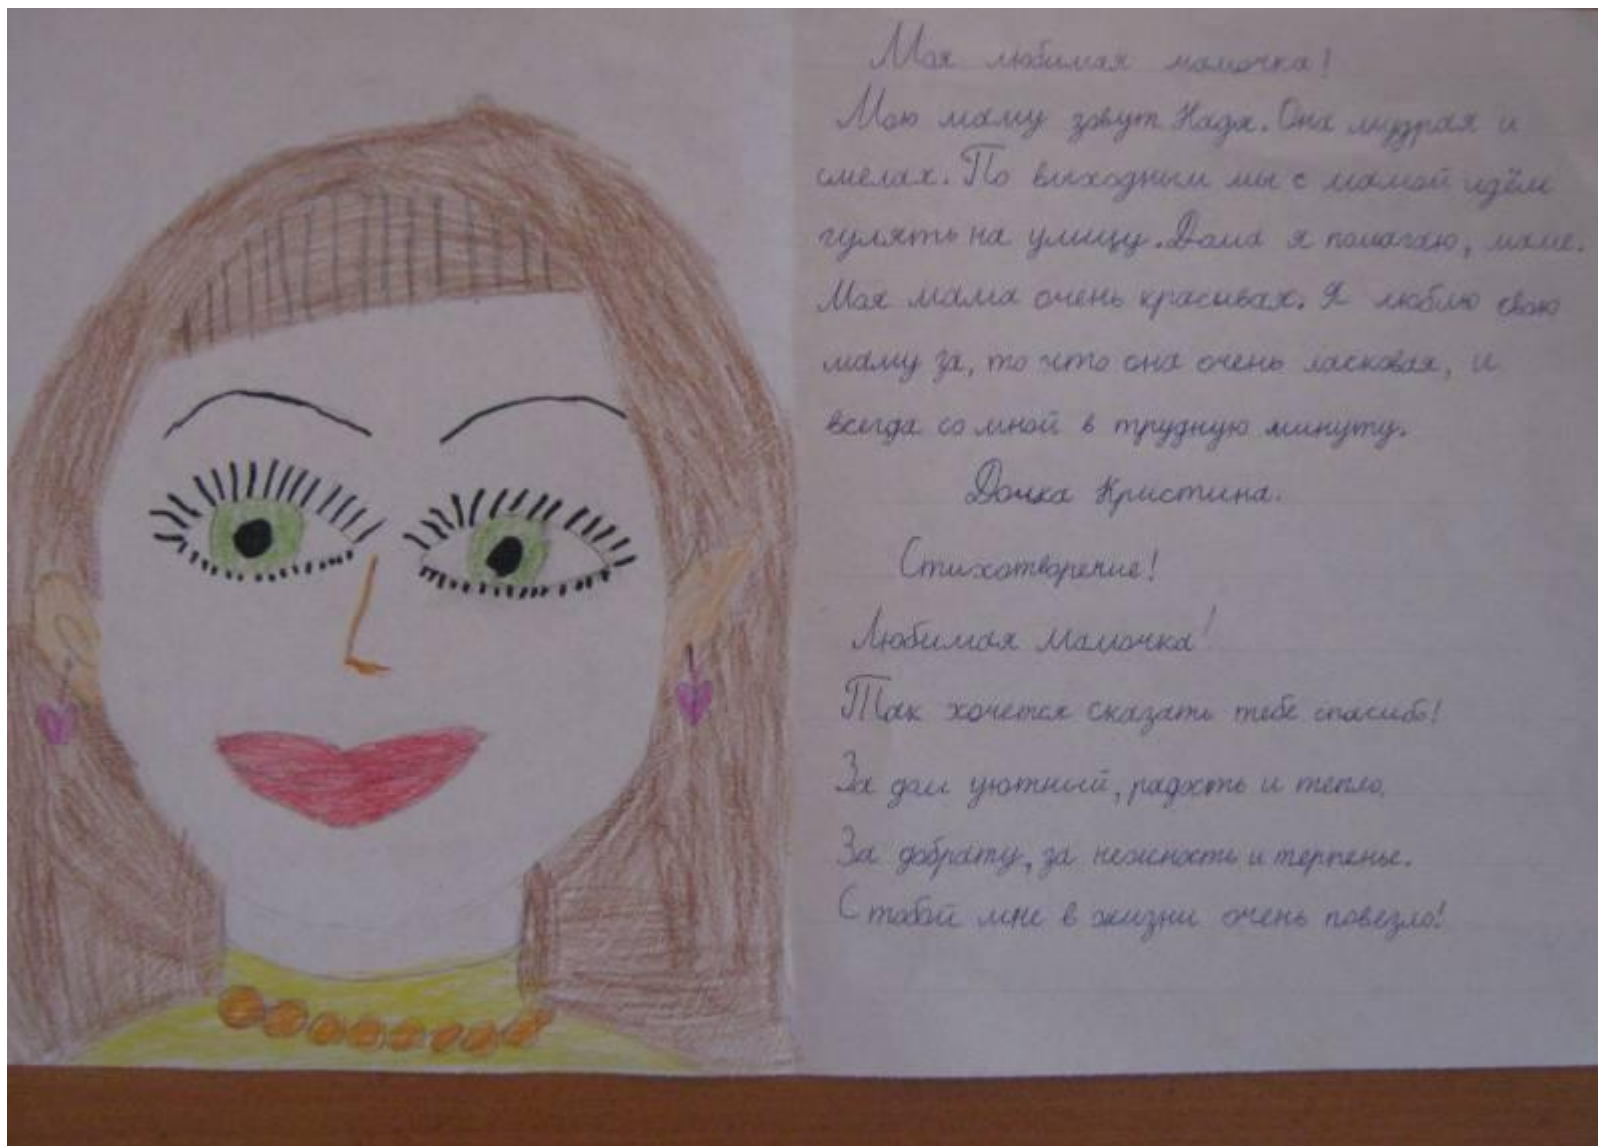 Моя любимая мамочка!
Мою маму зовут Надя. Она мудрая и
смелая. По выходным мы с мамой идём
гулять на улицу. Дома я помогаю, маме.
Моя мама очень красивая. Я люблю свою
маму за, то что она очень ласковая, и
всегда со мной в трудную минуту.
Дочка Кристина.
Стихотворение!
Любимая мамочка!
Так хочется сказать тебе спасибо!
За дом уютный, радость и тепло,
За доброту, за нежность и терпенье.
С тобой мне в жизни очень повезло!